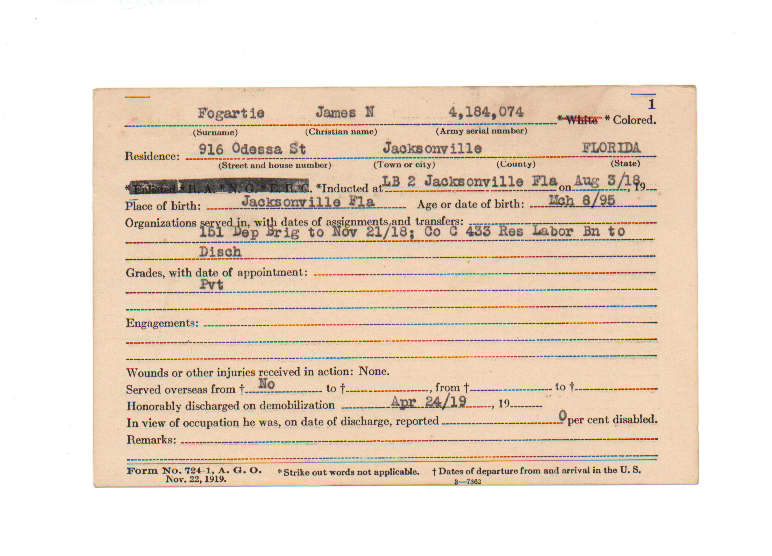 1
Fogartie James N 4,184,074 * White * Colored.
(Surname) (Christian name) (Army serial number)
Residence: 916 Odessa St Jacksonville FLORIDA
(Street and house number) (Town or city) (County) (State)
* Enlisted * R. A. * N. G. * E. R. C. *Inducted at LB 2 Jacksonville Fla on Aug 3/18, 19
Place of birth: Jacksonville Fla Age or date of birth: Mch 8/95
Organizations served in, with dates of assignments and transfers:
151 Dep Brig to Nov 21/18; Co C 433 Res Labor Bn to
Disch
Grades, with date of appointment:
Pvt
Engagements:
Wounds or other injuries received in action: None.
Served overseas from † No to †, from † to †
Honorably discharged on demobilization Apr 24/19, 19
In view of occupation he was, on date of discharge, reported 0 per cent disabled.
Remarks:
Form No. 724-1, A. G. O. *Strike out words not applicable. † Dates of departure from and arrival in the U. S.
Nov. 22, 1919. 3—7363